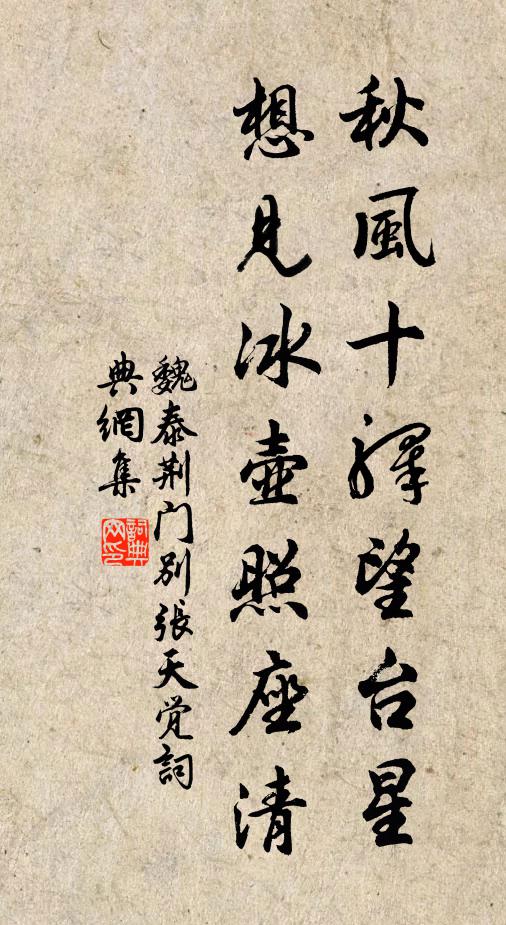 秋風十驛望台星
想見冰壺照座清
魏泰荆门别張天觉詞
典網集
詞典网印